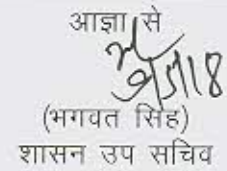 आज्ञा से
(भगवत सिंह)
शासन उप सचिव